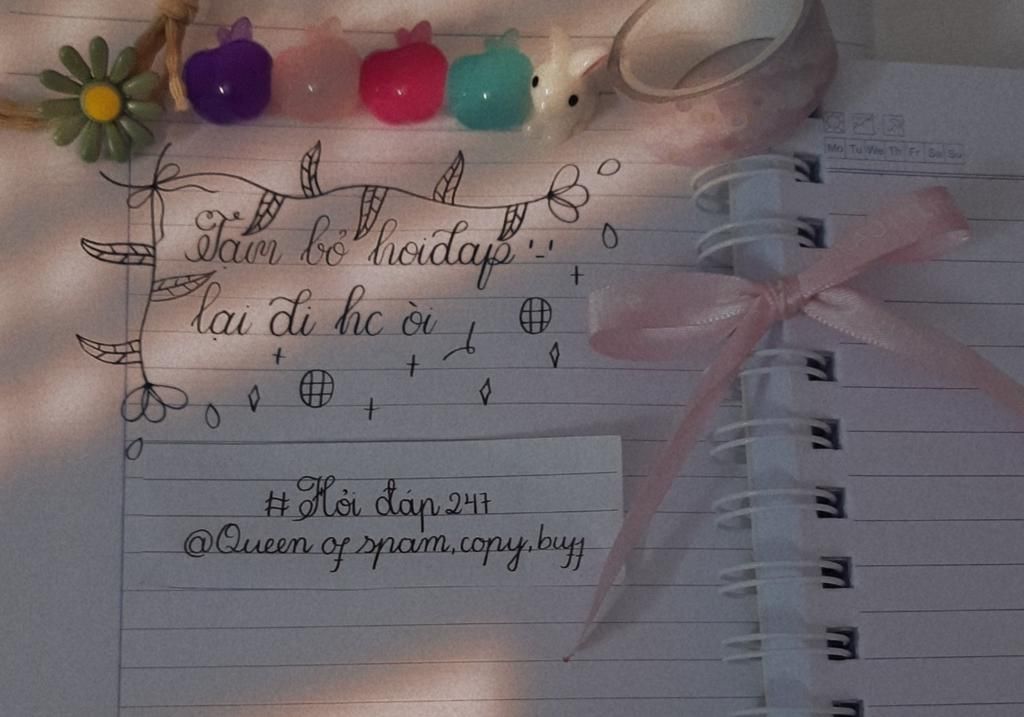 Tạm bỏ hoidap :-:
lại đi hc òi
#Hỏi đáp 247
@Queen of spam,copy,buff
Mo Tu We Th Fr Sa Su